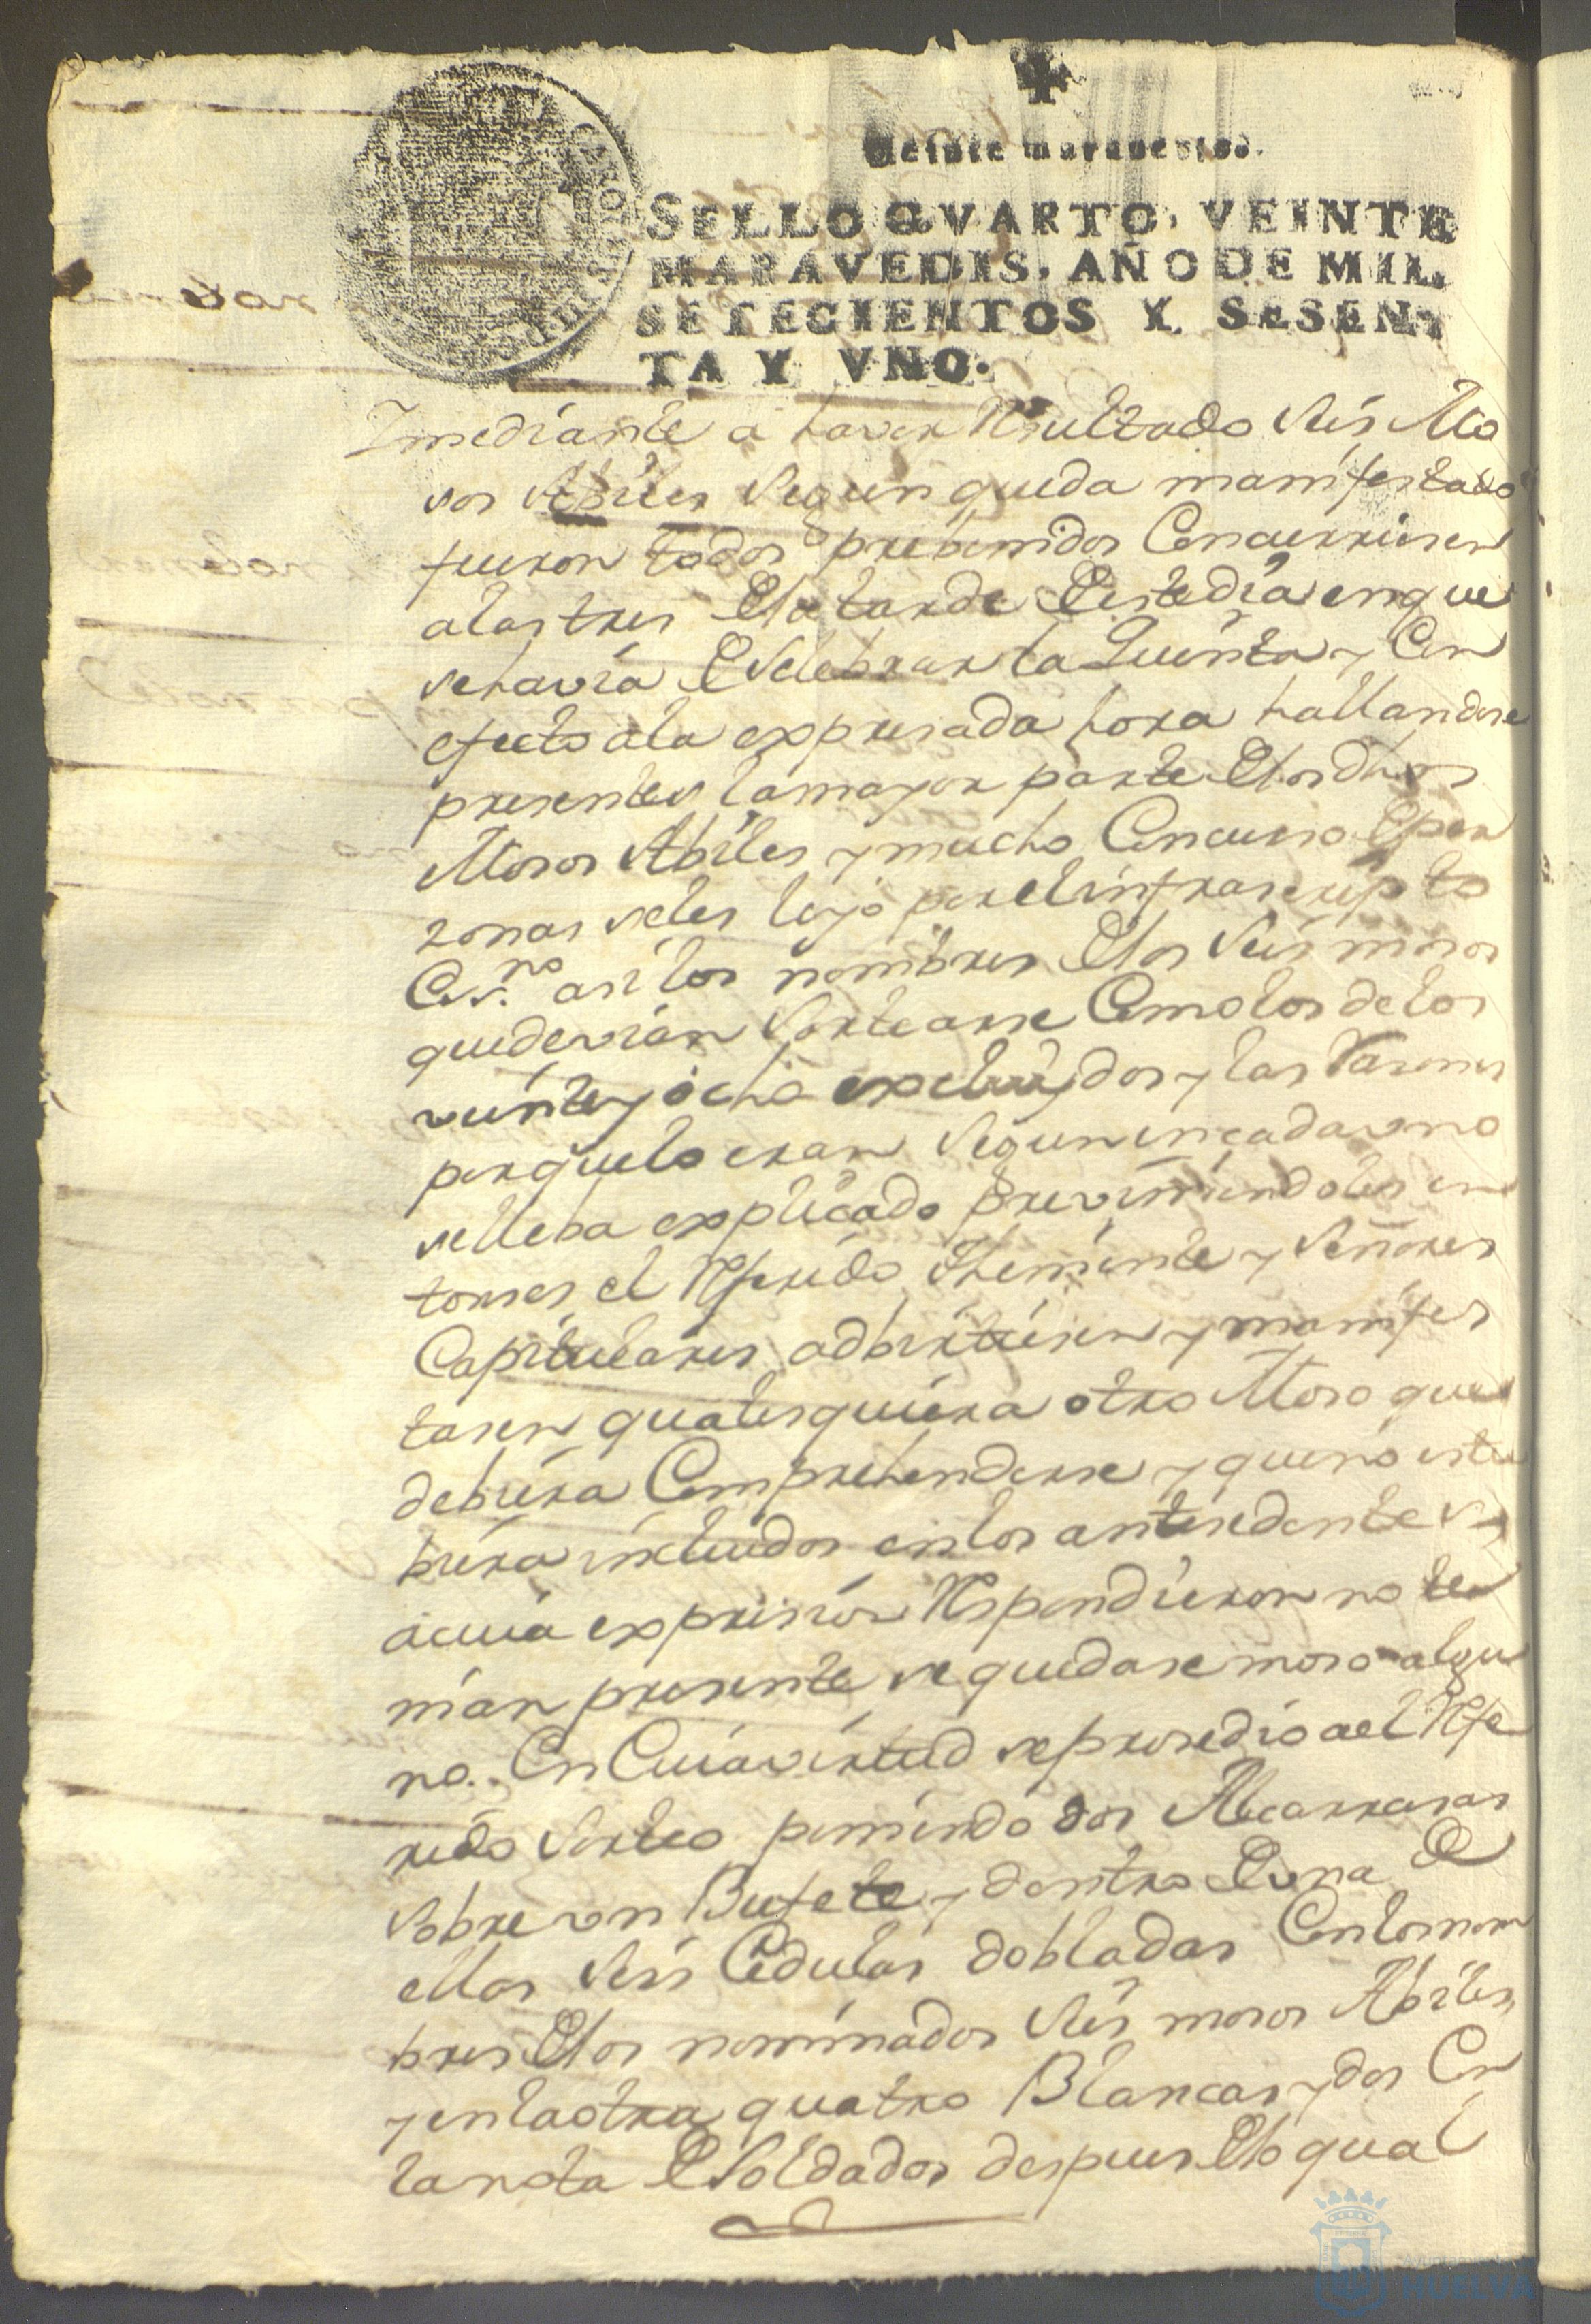 Veinte maravedis.
SELLO QVARTO, VEINTE
MARAVEDIS, AÑO DE MIL
SETECIENTOS Y SESEN-
TA Y VNO.
Imediante a haver Resultado seis Mo
sos Abiles segun queda manifestado
fueron todos prebenidos Concurriesen
a las tres de la tarde de este dia en que
se havia de selebrar la Quinta y Con
efecto a la expresada hora hallandose
presentes la mayor parte de los dhos
Mosos Abiles y mucho Concurso de per
zonas se les leyo por el infrascripto
Es.no asi los nombres de los seis mosos
que devian sortearse Como los de los
veinte y ocho excluydos y las Rasones
porque lo eran segun en cada uno
se lleba explicado previniendoles en
tonses el Referido Theniente y Señores
Capitulares adbirtiesen y manifes
tasen qualesquiera otro Moso que
debiera Comprehenderse y que no estu
biera incluidos en los antesedentes
a cuia expresion Respondieron no te
nian presente se quedase moso algu
no. En Cuia virtud se prosedio a el Refe
rido sorteo poniendo dos Alcarrasas
sobre un Bufete y dentro de una de
ellas seis Cedulas dobladas Con los nom
bres de los nominados seis mosos Abiles,
y en la otra quatro Blancas y dos Con
la nota de soldados despues de lo qual
HUELVA